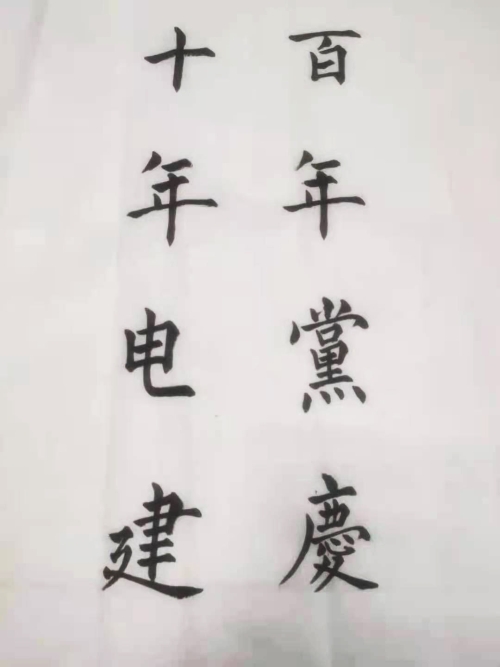 百年黨慶
十年电建